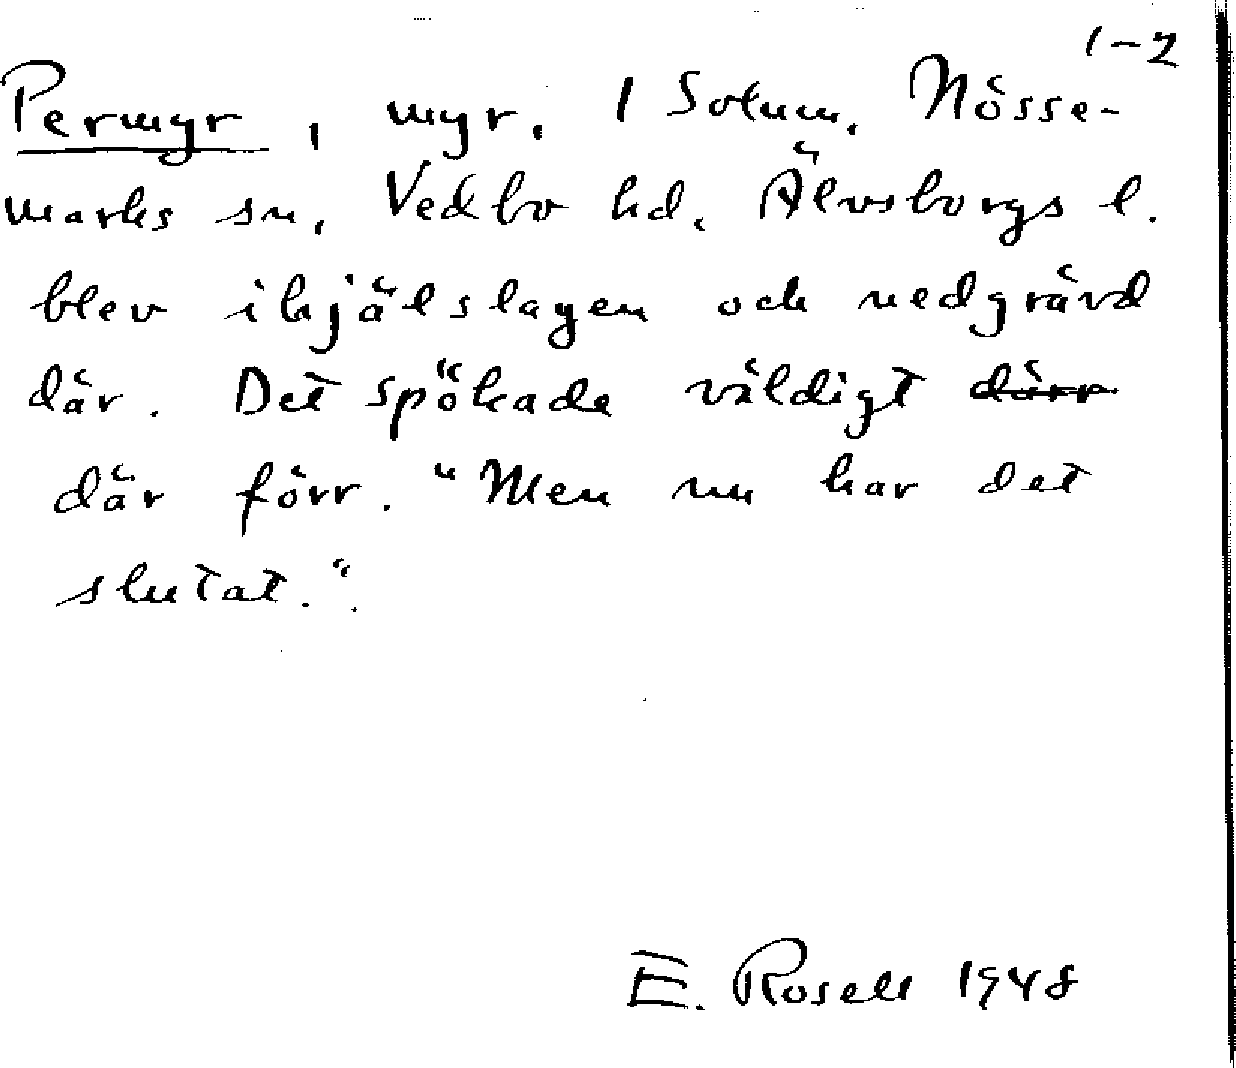 1-2
Permyr, myr. 1 Solum. Nösse-
marks sn, Vedbo hd. Älvsborgs l.
blev ihjälslagen och nedgrävd
där. Det spökade väldigt därr
där förr. "Men nu har det
slutat.".
E. Rosell 1948